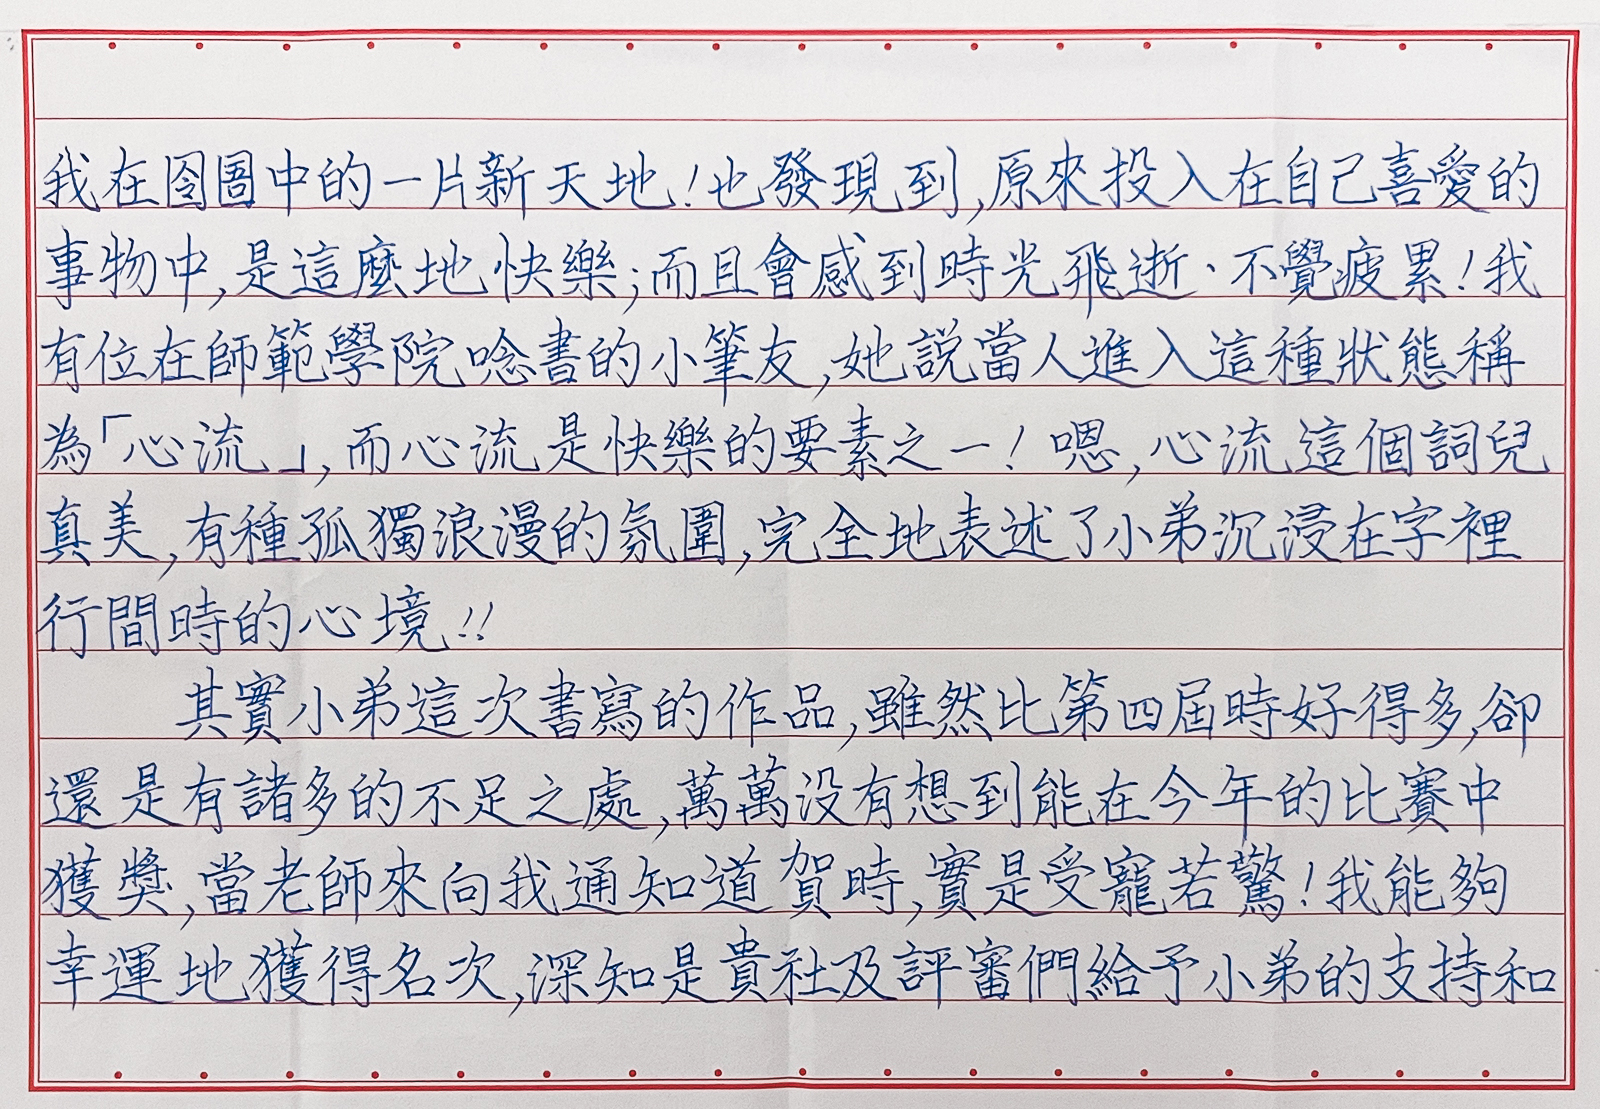 我在囹圄中的一片新天地!也發現到,原來投入在自己喜愛的
事物中,是這麼地快樂;而且會感到時光飛逝、不覺疲累!我
有位在師範學院唸書的小筆友,她說當人進入這種狀態稱
為「心流」,而心流是快樂的要素之一!嗯,心流這個詞兒
真美,有種孤獨浪漫的氛圍,完全地表述了小弟沉浸在字裡
行間時的心境!!
其實小弟這次書寫的作品,雖然比第四屆時好得多,卻
還是有諸多的不足之處,萬萬沒有想到能在今年的比賽中
獲獎,當老師來向我通知道賀時,實是受寵若驚!我能夠
幸運地獲得名次,深知是貴社及評審們給予小弟的支持和